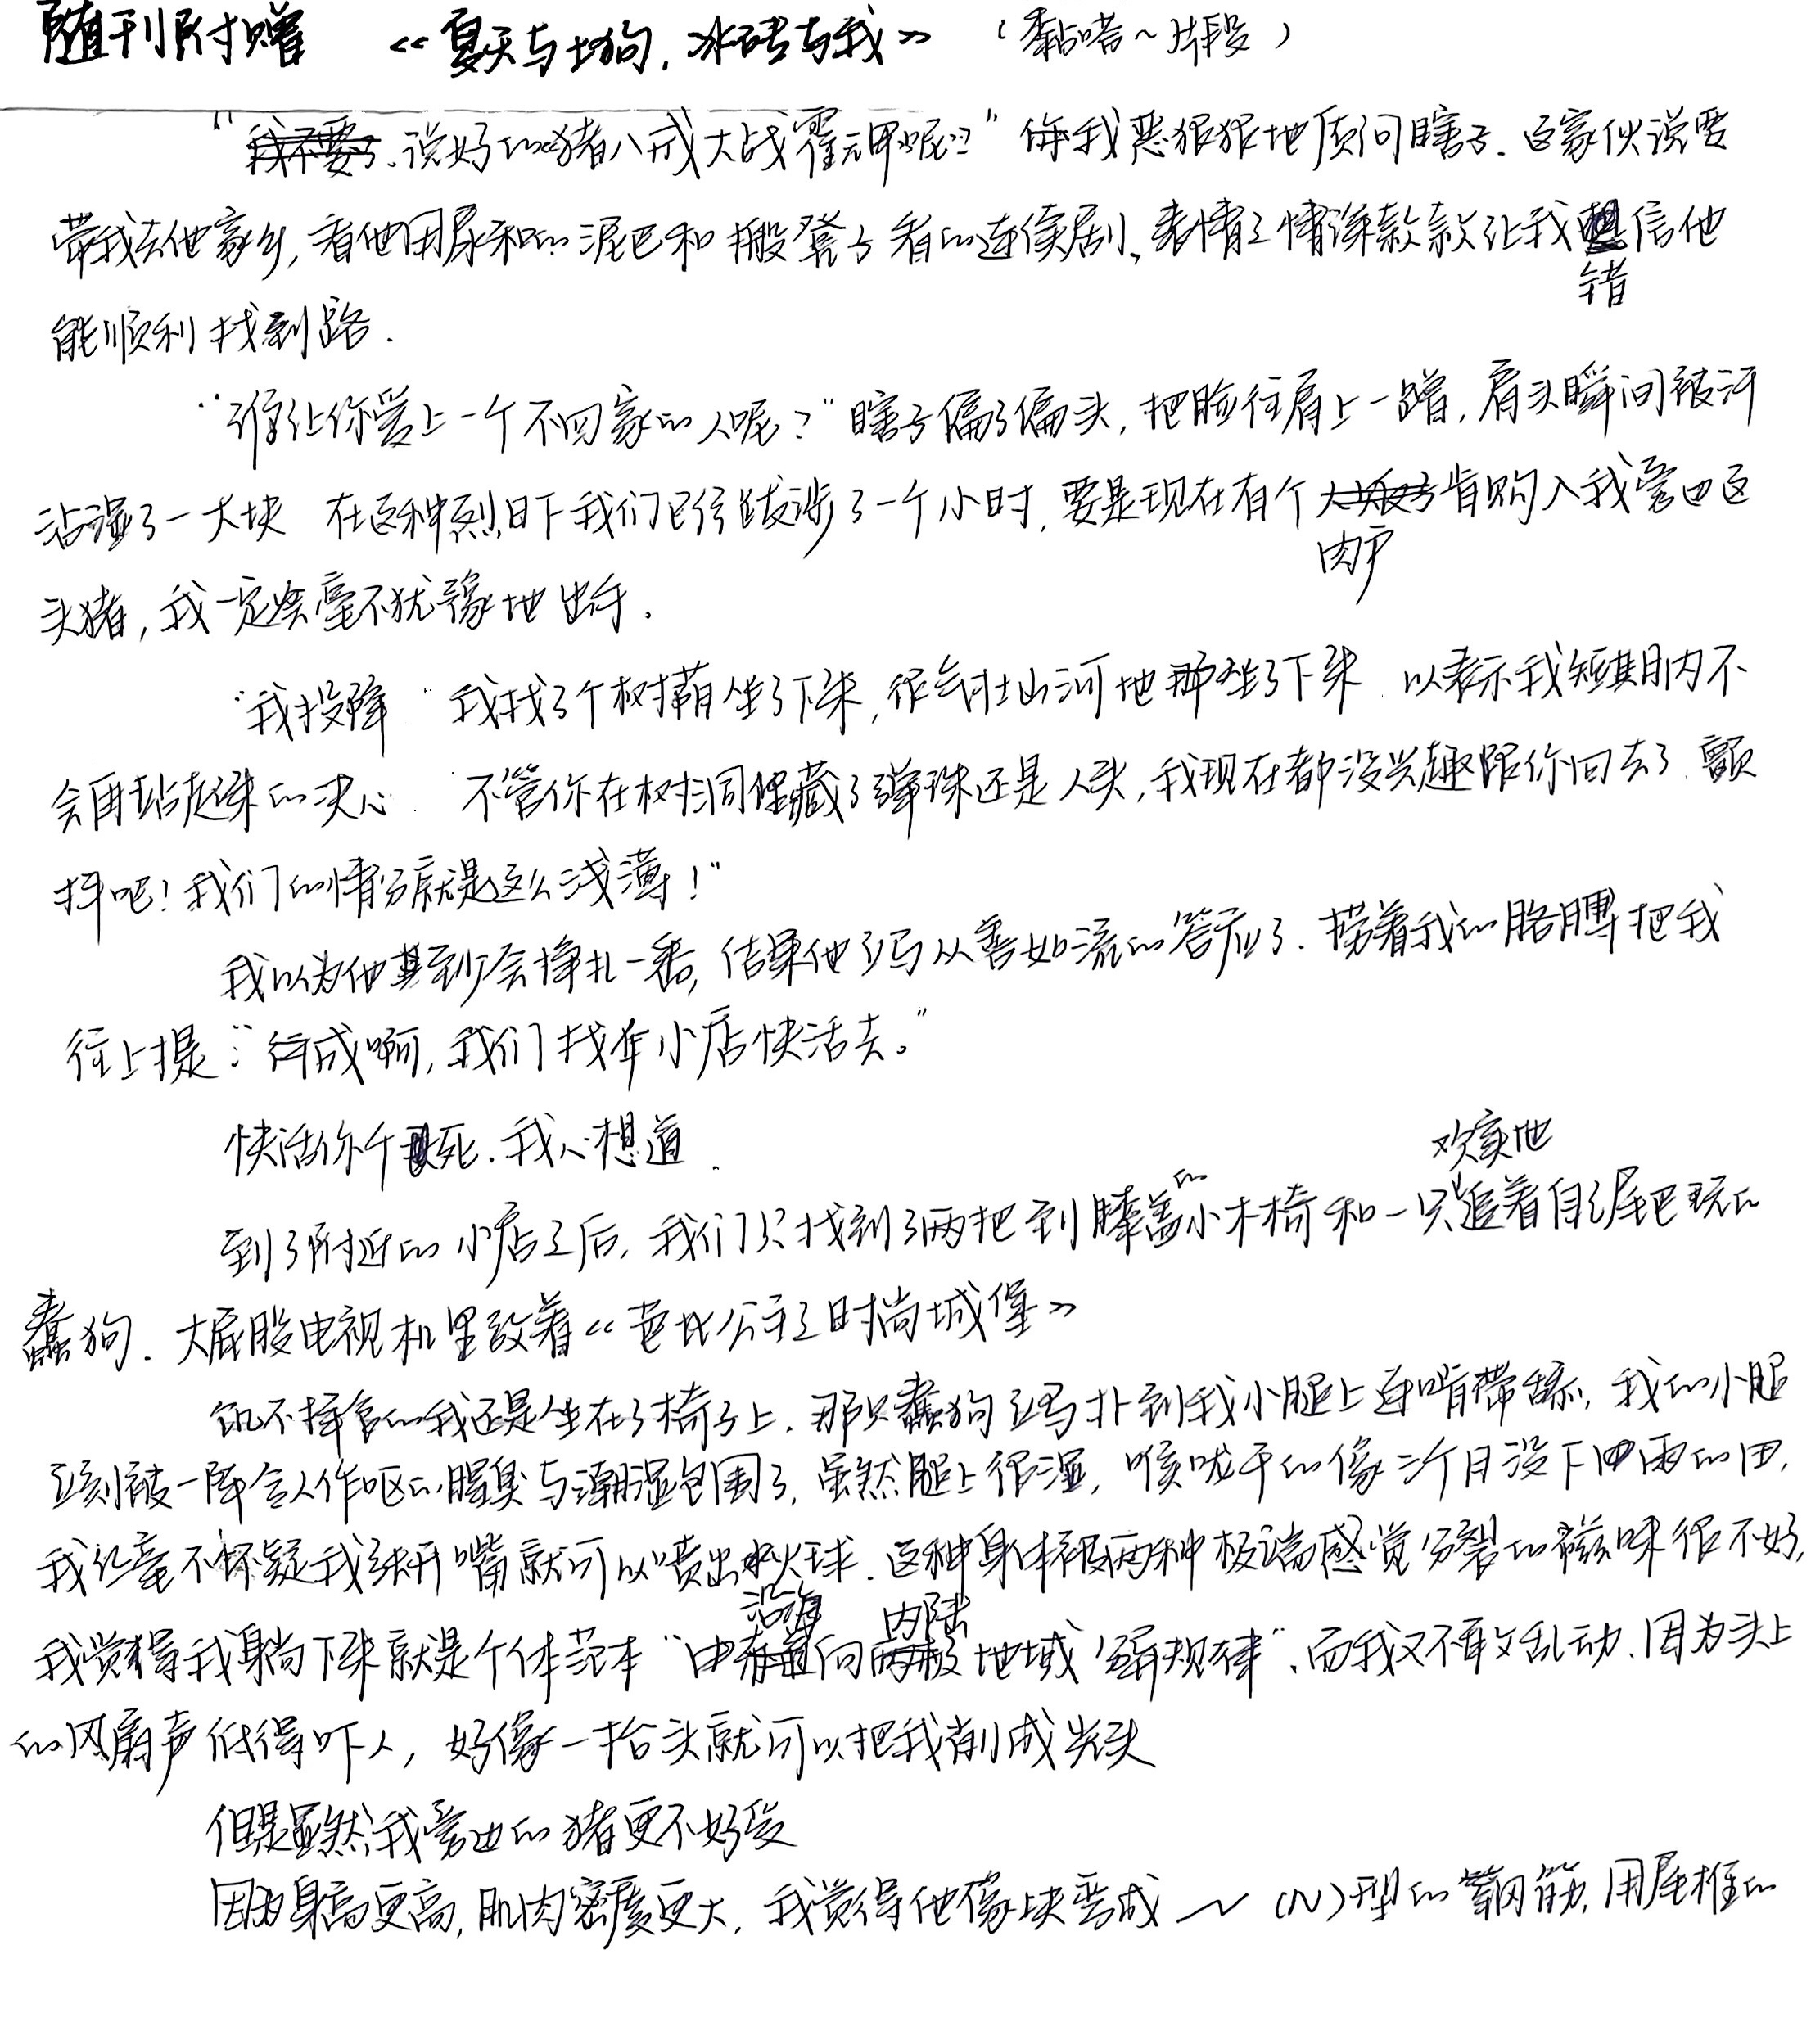 随刊附赠 《夏天与土狗,冰砖与我》 (黏嗒~片段)
"我不要了.说好的猪八戒大战霍元甲呢?"我恶狠狠地质问瞎子.这家伙说要
带我去他家乡,看他用尿和的泥巴和搬凳子看的连续剧,表情之情深款款让我错信他
能顺利找到路.
"谁让你爱上一个不回家的人呢?"瞎子偏了偏头,把脸往肩上一蹭,肩头瞬间被汗
沾湿了一大块 在这种烈日下我们已经跋涉了一个小时,要是现在有个肉户肯购入我旁边这
头猪,我一定会毫不犹豫地出手.
"我投降"我找了个树荫坐了下来,很气壮山河地坐了下来.以表示我短期内不
会再站起来的决心."不管你在树洞里藏了弹珠还是人头,我现在都没兴趣跟你回去了.颤
抖吧!我们的情分就是这么浅薄!"
我以为他至少会挣扎一番,结果他立马从善如流的答应了.捞着我的胳膊把我
往上提:"成啊,我们找年小店快活去。"
快活你个死.我心想道.
到了附近的小店之后,我们只找到了两把到膝盖的小木椅和一只欢实地追着自己尾巴玩的
蠢狗.大屁股电视机里放着《芭比公主之时尚城堡》
饥不择食的我还是坐在了椅子上.那只蠢狗立马扑到我小腿上连啃带舔,我的小腿
立刻被一阵令人作呕的腥臭与潮湿包围了,虽然腿上很湿,喉咙干的像三个月没下雨的田,
我丝毫不怀疑我张开嘴就可以喷出火球.这种身体被两种极端感觉分裂的滋味很不好,
我觉得我躺下来就是个体范本"由沿海向内陆地域分异规律".而我又不敢乱动.因为头上
的风扇声低得吓人,好像一抬头就可以把我削成光头
但是显然我旁边的猪更不好受
因为身高更高,肌肉密度更大,我觉得他像块弯成~(N)型的钢筋,用尾椎的